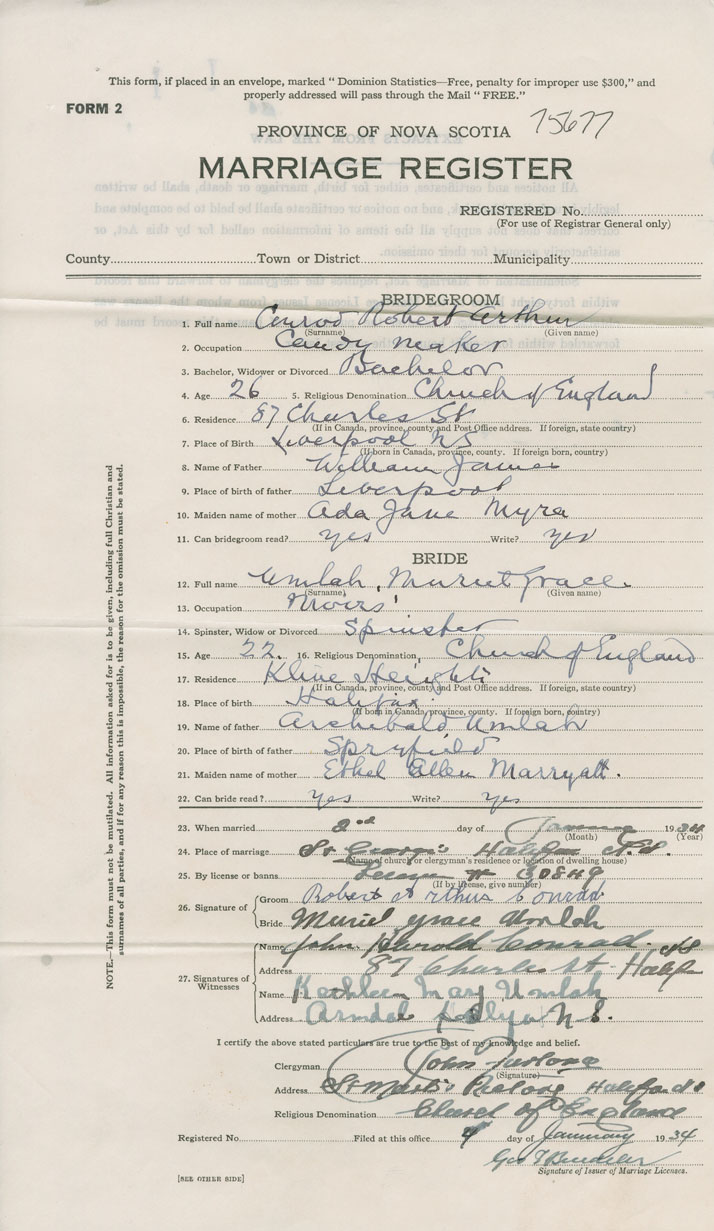 This form, if placed in an envelope, marked “ Dominion Statistics—Free, penalty for improper use $300,” and
properly addressed will pass through the Mail “ FREE.”
FORM 2
75677
PROVINCE OF NOVA SCOTIA
MARRIAGE REGISTER
REGISTERED No.
(For use of Registrar General only)
County Town or District Municipality
BRIDEGROOM
1. Full name Conrod Robert Arthur
(Surname) (Given name)
2. Occupation Candy maker
3. Bachelor, Widower or Divorced Bachelor
4. Age 26 5. Religious Denomination Church of England
6. Residence 87 Charles St
(If in Canada, province, county and Post Office address. If foreign, state country)
7. Place of Birth Liverpool NS
(If born in Canada, province, county. If foreign born, country)
8. Name of Father William James
9. Place of birth of father Liverpool
10. Maiden name of mother Ada Jane Myra
11. Can bridegroom read? yes Write? yes
BRIDE
12. Full name Umlah, Muriel Grace.
(Surname) (Given name)
13. Occupation Moirs'
14. Spinster, Widow or Divorced Spinster
15. Age 22. 16. Religious Denomination Church of England
17. Residence Kline Heights
(If in Canada, province, county and Post Office address. If foreign, state country)
18. Place of birth Halifax
(If born in Canada, province, county. If foreign born, country)
19. Name of father Archibald Umlah
20. Place of birth of father Spryfield
21. Maiden name of mother Ethel Ellen Marryatt.
22. Can bride read? yes Write? yes
23. When married 2nd day of January 1934
(Month) (Year)
24. Place of marriage St George's Halifax N.S.
(Name of church or clergyman's residence or location of dwelling house)
25. By license or banns License
(If by license, give number)
26. Signature of
Groom Robert Arthur Conrad
Bride Muriel Grace Umlah
27. Signatures of Witnesses
Name John Harold Conrad
Address 87 Charles St. Halifax
Name Kathleen May Umlah
Address Armdale N.S.
I certify the above stated particulars are true to the best of my knowledge and belief.
Clergyman John
(Signature)
Address St Mark's Halifax
Religious Denomination Church of England
Registered No. Filed at this office 4 day of January 1934
Signature of Issuer of Marriage Licenses.
[SEE OTHER SIDE]
NOTE.—This form must not be mutilated. All information asked for is to be given, including full Christian and
surnames of all parties, and if for any reason this is impossible, the reason for the omission must be stated.